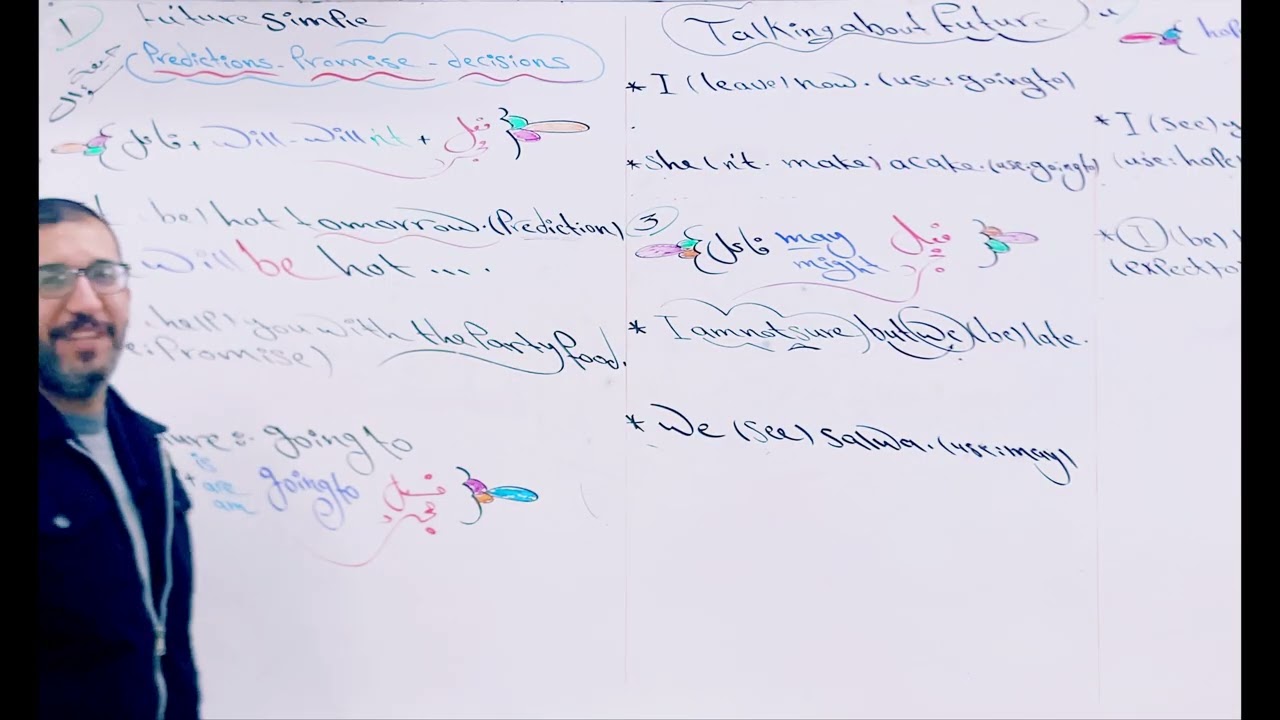 1
Future Simple
Predictions - Promise - decisions
فاعل + will - willn't + فعل
be) hot tomorrow. (Prediction)
will be hot ....
help) you with the Party food.
e: Promise)
ture: going to
+ is are am going to فعل
Talking about Future
* I (leave) now. (use: going to)
* She (n't. make) a cake. (use: going to)
3
فاعل may might فعل
* I am not sure) but (we) (be) late.
* We (see) Salwa. (use: may)
hop
* I (see) y
(use: hope
* I (be) l
(expect to